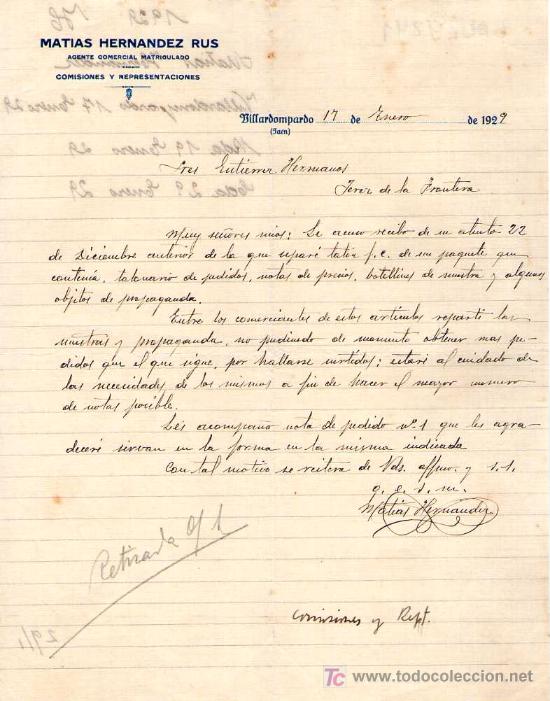 MATIAS HERNANDEZ RUS
AGENTE COMERCIAL MATRICULADO
COMISIONES Y REPRESENTACIONES
Villardompardo 17 de Enero de 1929
(Jaen)
Sres Gutiérrez Hermanos
Jerez de la Frontera
Muy señores mios: Le acuso recibo de su atenta 22
de Diciembre anterior de la que separé talon f.c. de un paquete que
contenia, talonario de pedidos, notas de precios, botellines de muestra y algunos
objetos de propaganda.
Entre los comerciantes de estos articulos reparti las
muestras y propaganda, no pudiendo de momento obtener mas pe-
didos que el que sigue, por hallarse surtidos; estaré al cuidado de
las necesidades, de los mismos a fin de hacer el mayor numero
de notas posible.
Les acompaño nota de pedido nº 1 que les agra-
deceré sirvan en la forma en la misma indicada
Con tal motivo se reitera de Vds. affmo. y s.s.
q. e. s. m.
Matias Hernández
Retirada 9/1
Comisiones y Rept.
29/1
1929
Matias Hernandez
Villardompardo 17 Enero 29
19 Enero 29
29 Enero 29
TC www.todocoleccion.net